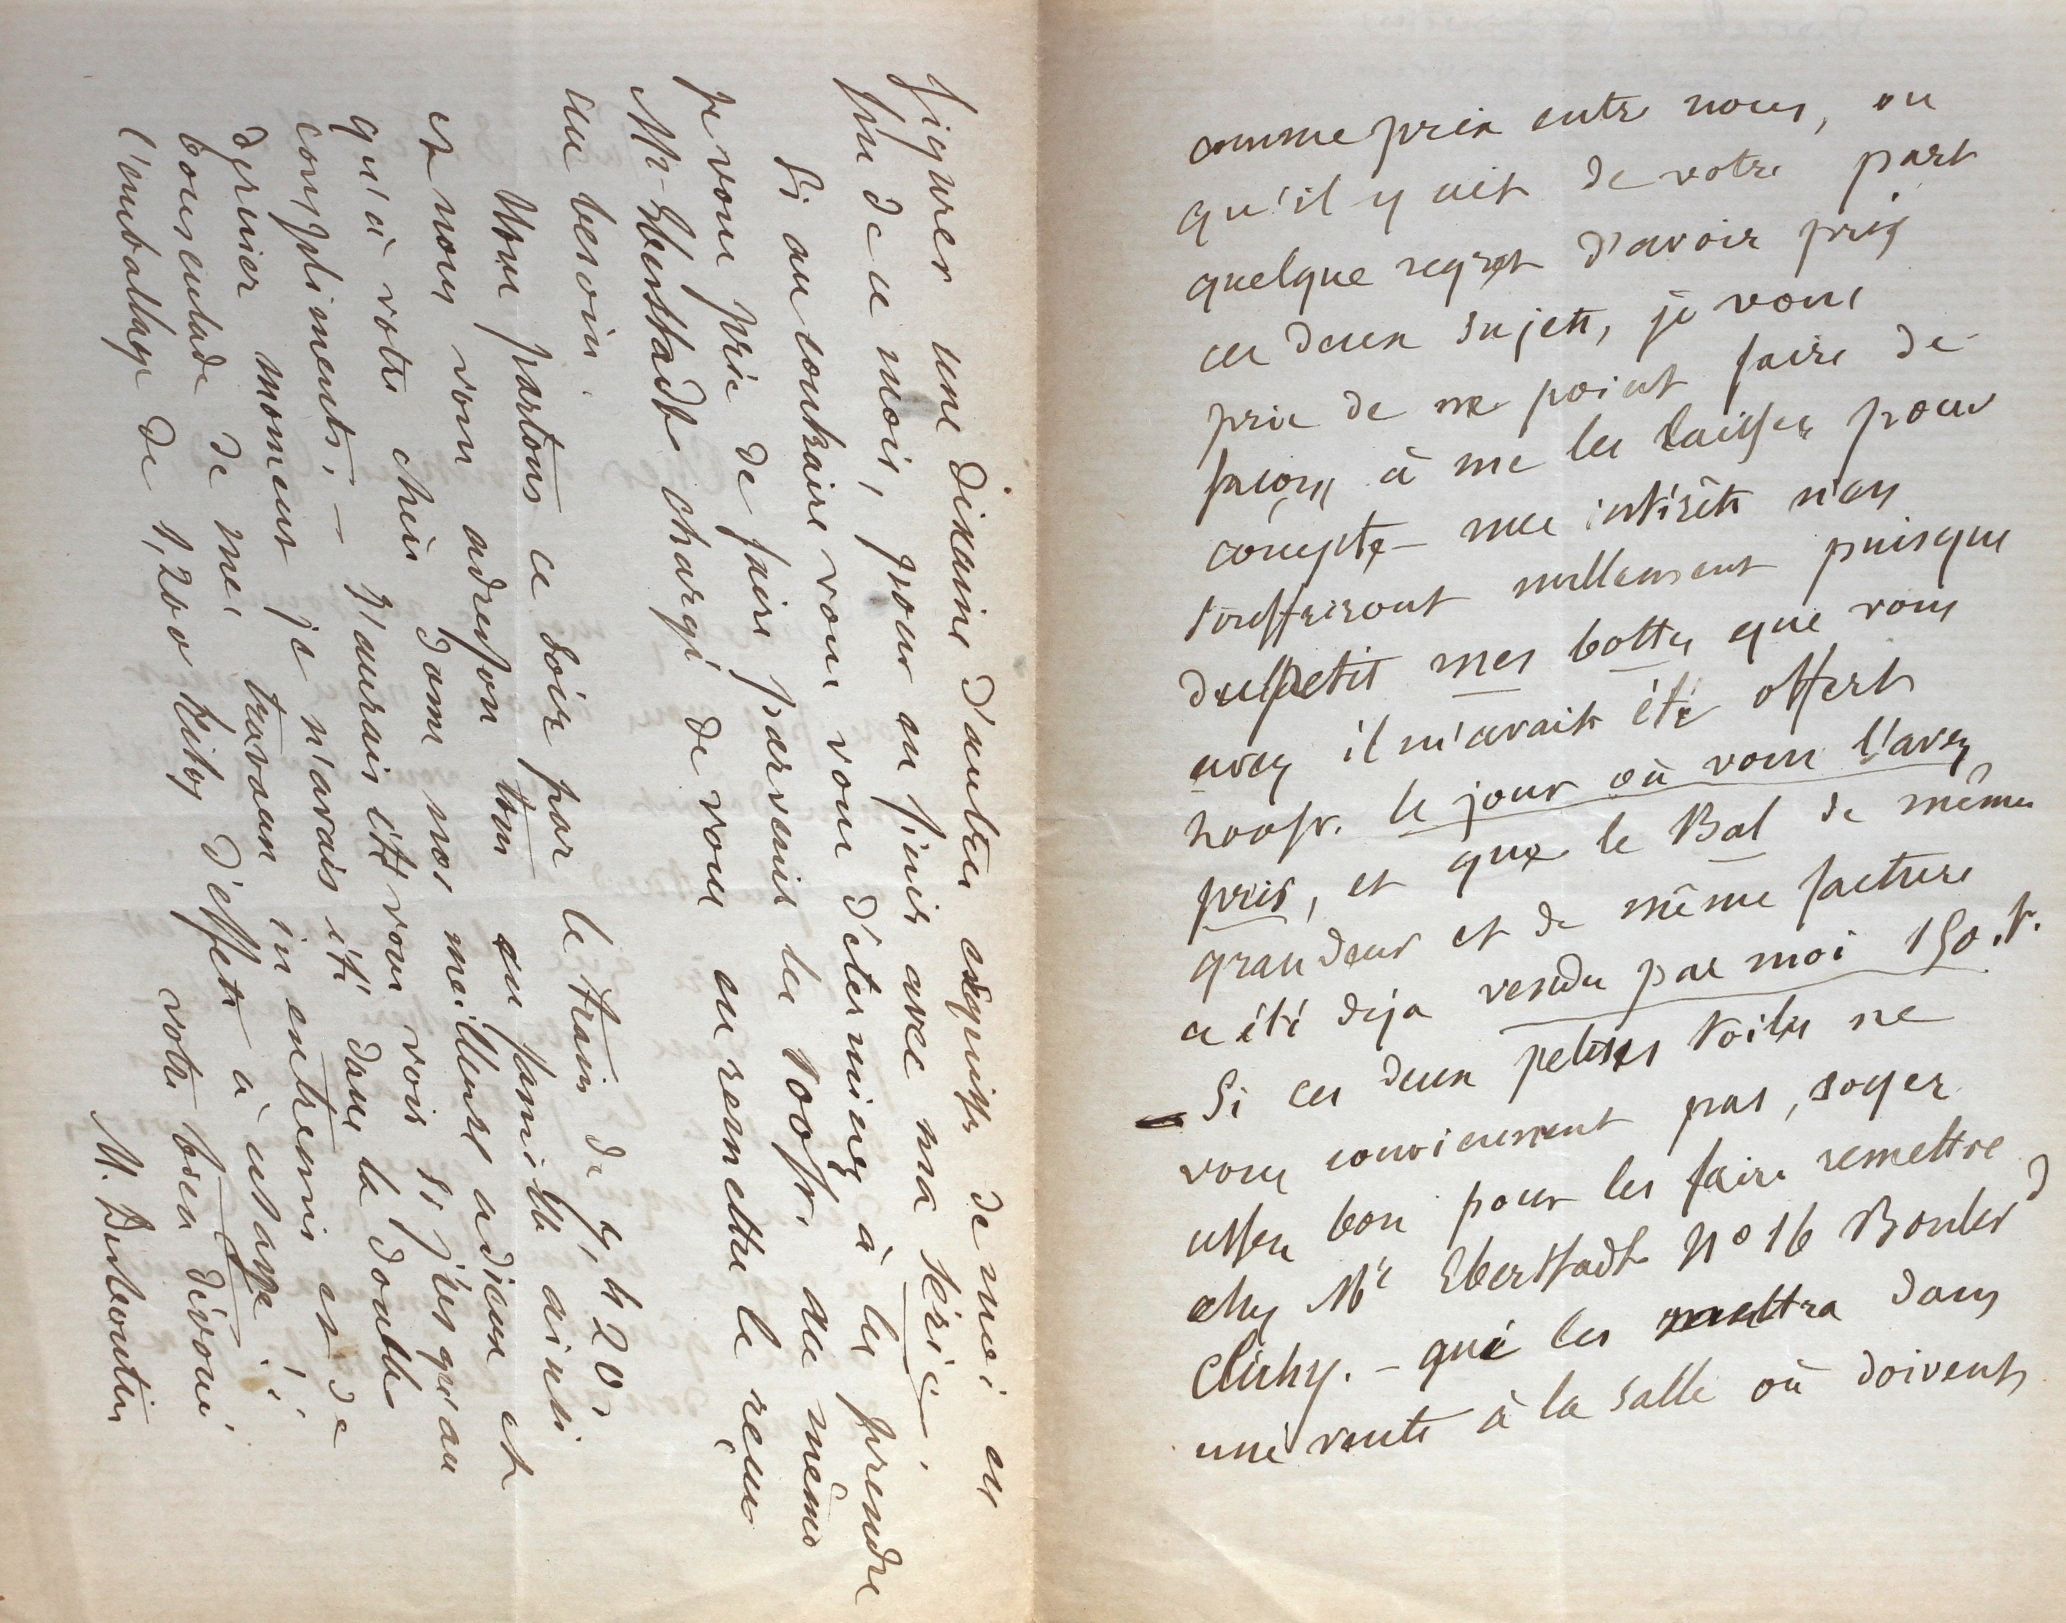 comme prix entre nous, ou
qu'il y ait de votre part
quelque regret d'avoir pris
ces deux sujets, je vous
prie de ne point faire de
façons à me les laisser pour
compte – mes intérêts n'en
souffriront nullement puisque
du petit mes bottes que vous
avez il m'avait été offert
200fr. le jour où vous l'avez
pris, et que le Bal de même
grandeur et de même facture
a été déja vendu par moi 150 f.
Si ces deux petites toiles ne
vous conviennent pas, soyez
assez bon pour les faire remettre
chez Mr Eberstadt No 16 Boulevd
Clichy. – qui les mettra dans
une vente à la salle où doivent
figurer une dixaine d'autres esquisses de moi en
fin de ce mois, pour en finir avec ma série.
Si au contraire vous vous déterminez à les prendre
je vous prie de faire parvenir les 100fr. au même
Mr Eberstadt chargé de vous en remettre le reçu
au besoin.
Nous partons ce soir par le train de 9,h20,
et nous vous adressons tous en famille ainsi
qu'à votre chère Dame nos meilleurs adieux et
compliments. – J'aurais été vous voir si jusqu'au
dernier moment je n'avais été dans la double
bousculade de mes travaux in extremis et de
l'emballage de 1,200 kilog d'effets à usage!!
votre bien dévoué
M. Desboutin